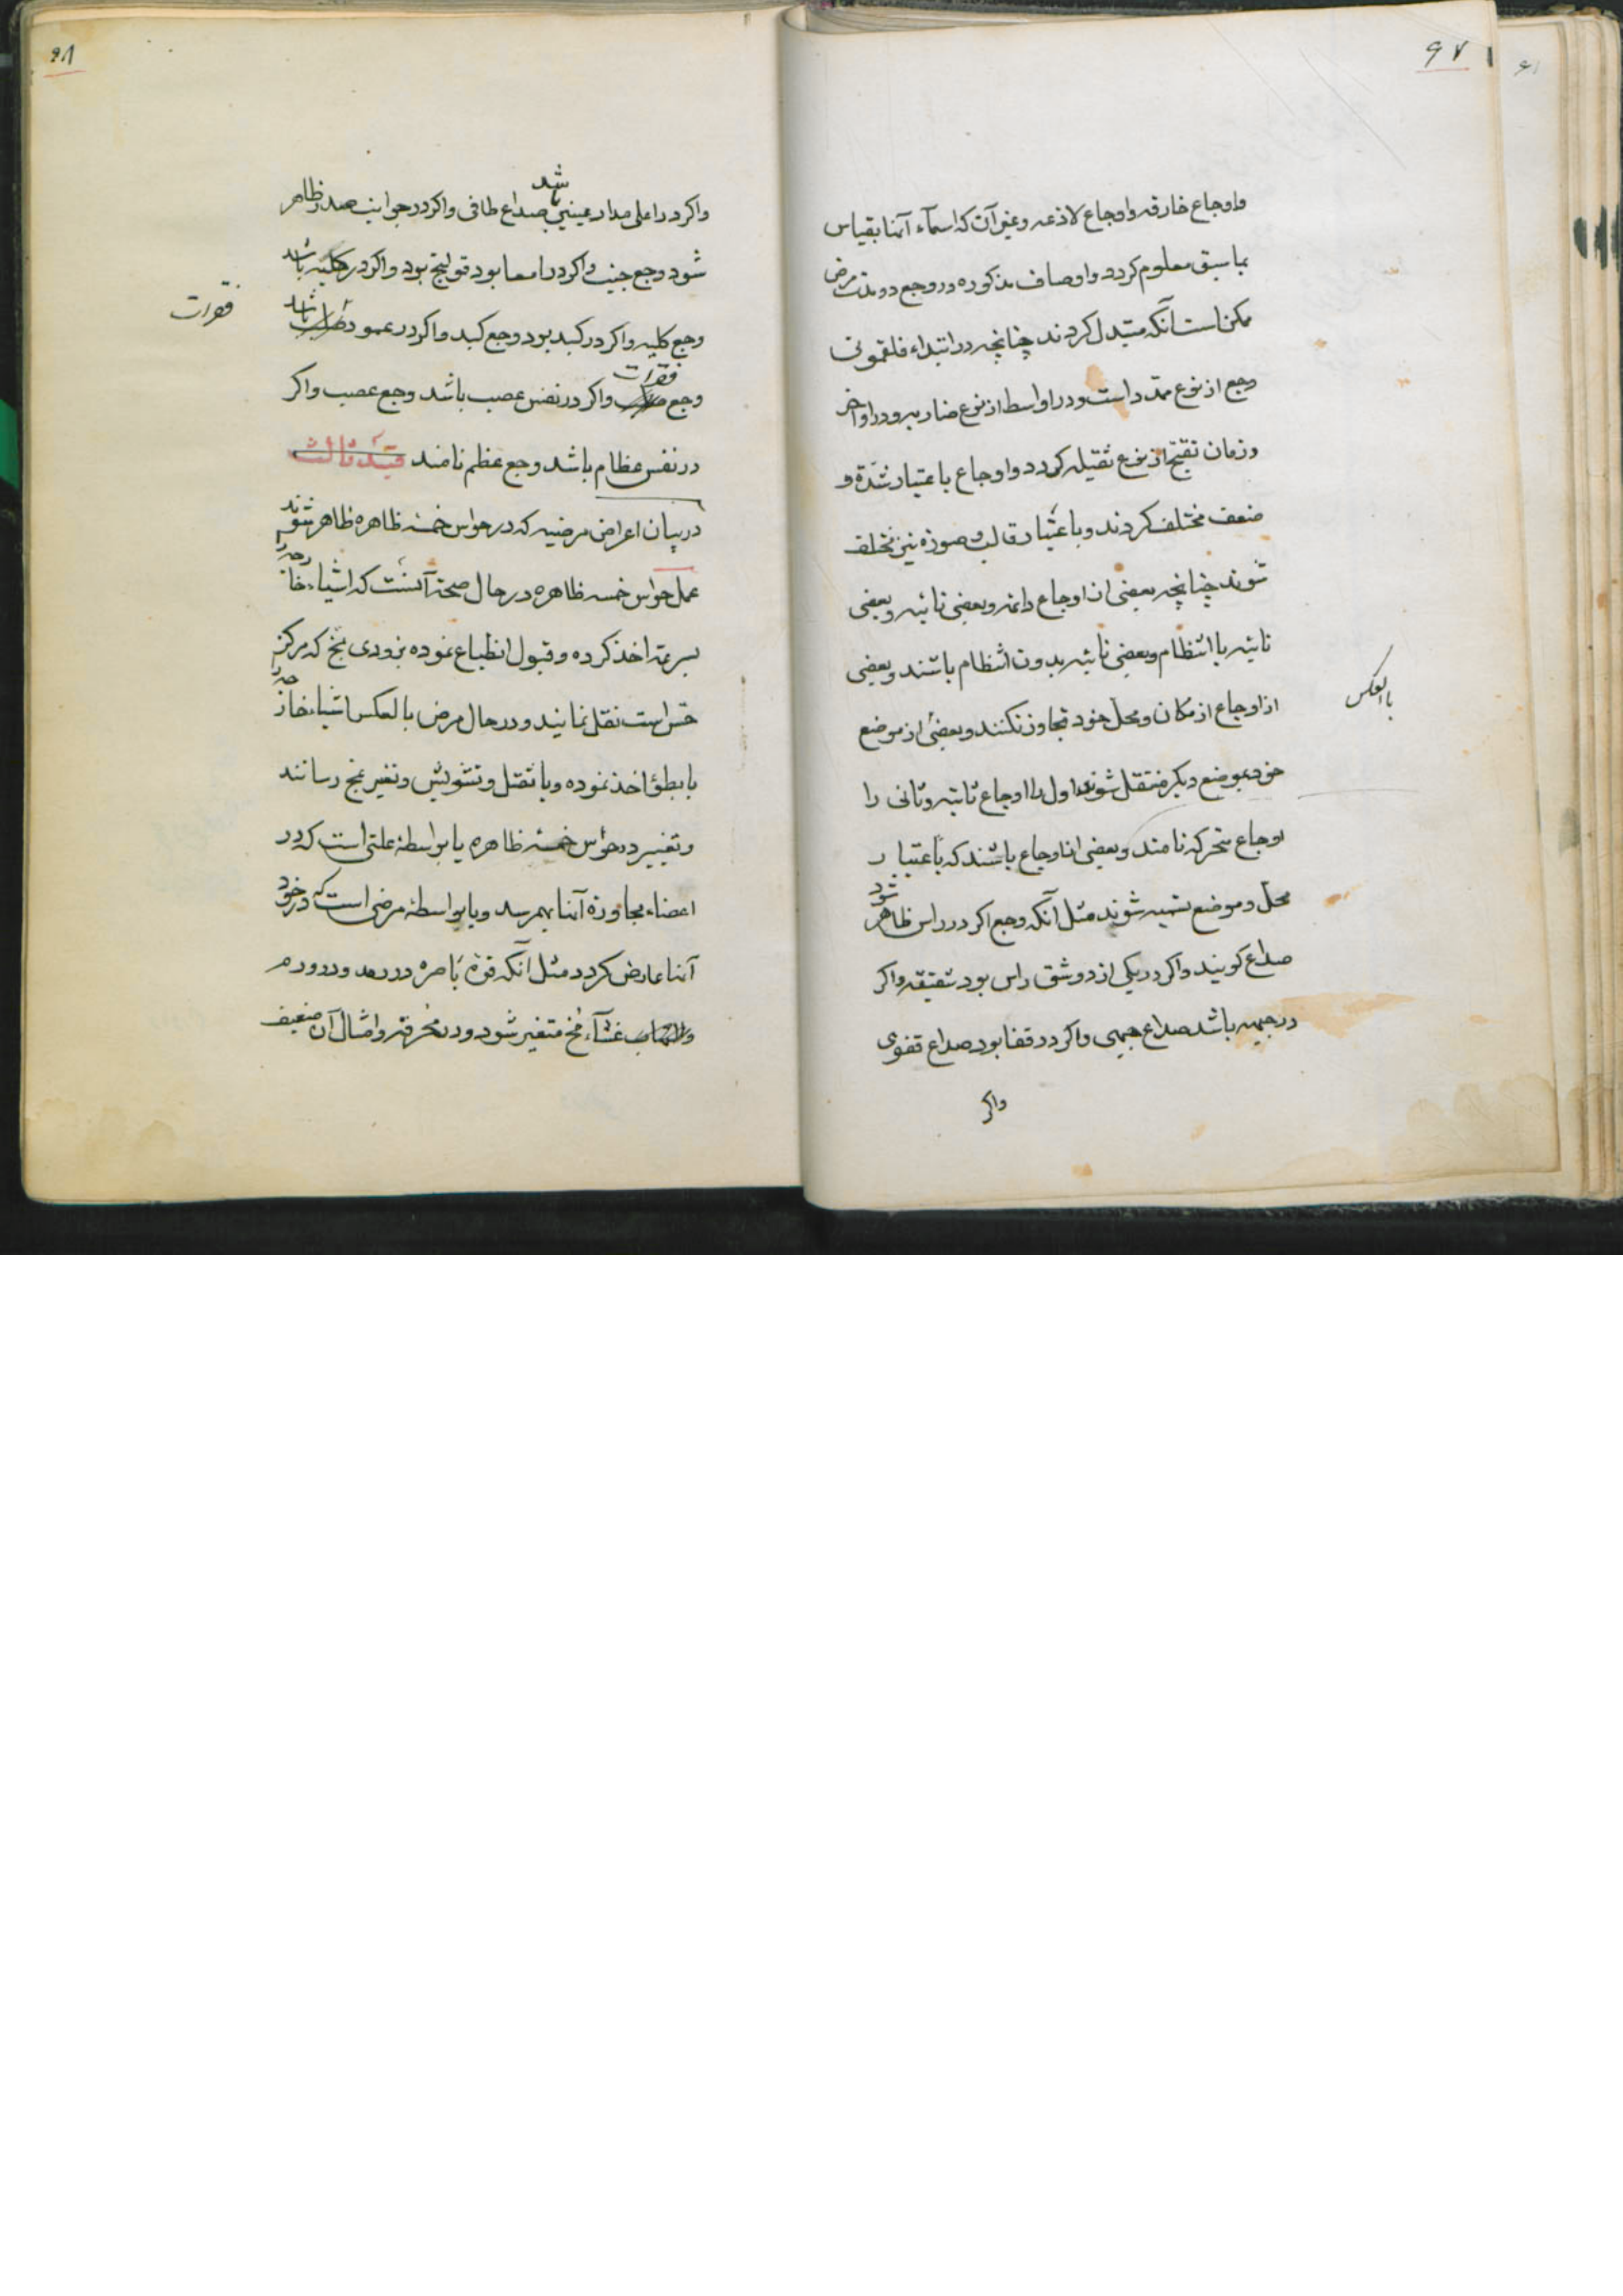 ۶۷
واوجاع خارقه واوجاع لاذعه وغیر آن که اسمآء آنها بقیاس
بما سبق معلوم کردد واوصاف مذکوره در وجع در مدت مرض
ممکن است آنکه متبدل کردند چنانچه در ابتداء فلغمونی
وجع از نوع ممتد است ودر اواسط از نوع ضاربه ودر اواخر
وزمان تقیح از نوع ثقیله کردد واوجاع باعتبار شدة و
ضعف مختلف کردند وباعتبار قالب وصورة نیز مختلف
شوند چنانچه بعضی از اوجاع دائمه وبعضی نائبه وبعضی
نائبه با انتظام وبعضی نائبه بدون انتظام باشند وبعضی
از اوجاع از مکان ومحل خود تجاوز نکنند وبعضی از موضع
بالعکس
خود بموضع دیکر منتقل شوند اول را اوجاع ثابته وثانی را
اوجاع متحرکه نامند وبعضی از اوجاع باشند که باعتبار
محل وموضع تسمیه شوند مثل آنکه وجع اکر در راس ظاهر شود
صداع کویند واکر در یکی از دو شق راس بود شقیقه واکر
در جبهه باشد صداع جبهی واکر در قفا بود صداع قفوی
واکر
۶۸
واکر در اعلی مدار عینین باشد صداع طاقی واکر در جوانب صدر ظاهر
شود وجع جنب واکر در امعا بود قولنج بود واکر در کلیه باشد
وجع کلیه واکر در کبد بود وجع کبد واکر در عمود باشد
فقرات
وجع فقرات واکر در نفس عصب باشد وجع عصب واکر
در نفس عظام باشد وجع عظم نامند
در بیان اعراض مرضیه که در حواس خمسه ظاهره ظاهر شوند
عمل حواس خمسه ظاهره در حال صحة آنست که اشیاء خارجه را
بسرعة اخذ کرده وقبول انطباع نموده بزودی بمخ که مرکز
حس است نقل نمایند ودر حال مرض بالعکس اشیاء خارجه را
یا ببطؤ اخذ نموده ویا بثقل وتشویش وتغیر بمخ رسانند
وتغییر در حواس خمسه ظاهره یا بواسطهٔ علتی است که در
اعضاء مجاورة آنها بهمرسد ویا بواسطهٔ مرضی است که در خود
آنها عارض کردد مثل آنکه قوة باصره در رمد ودر ورم
غشآء مخ متغیر شود ودر محرقه وامثال آن ضعیف